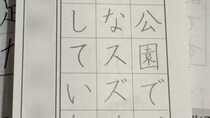 公園で
なスズ
してい